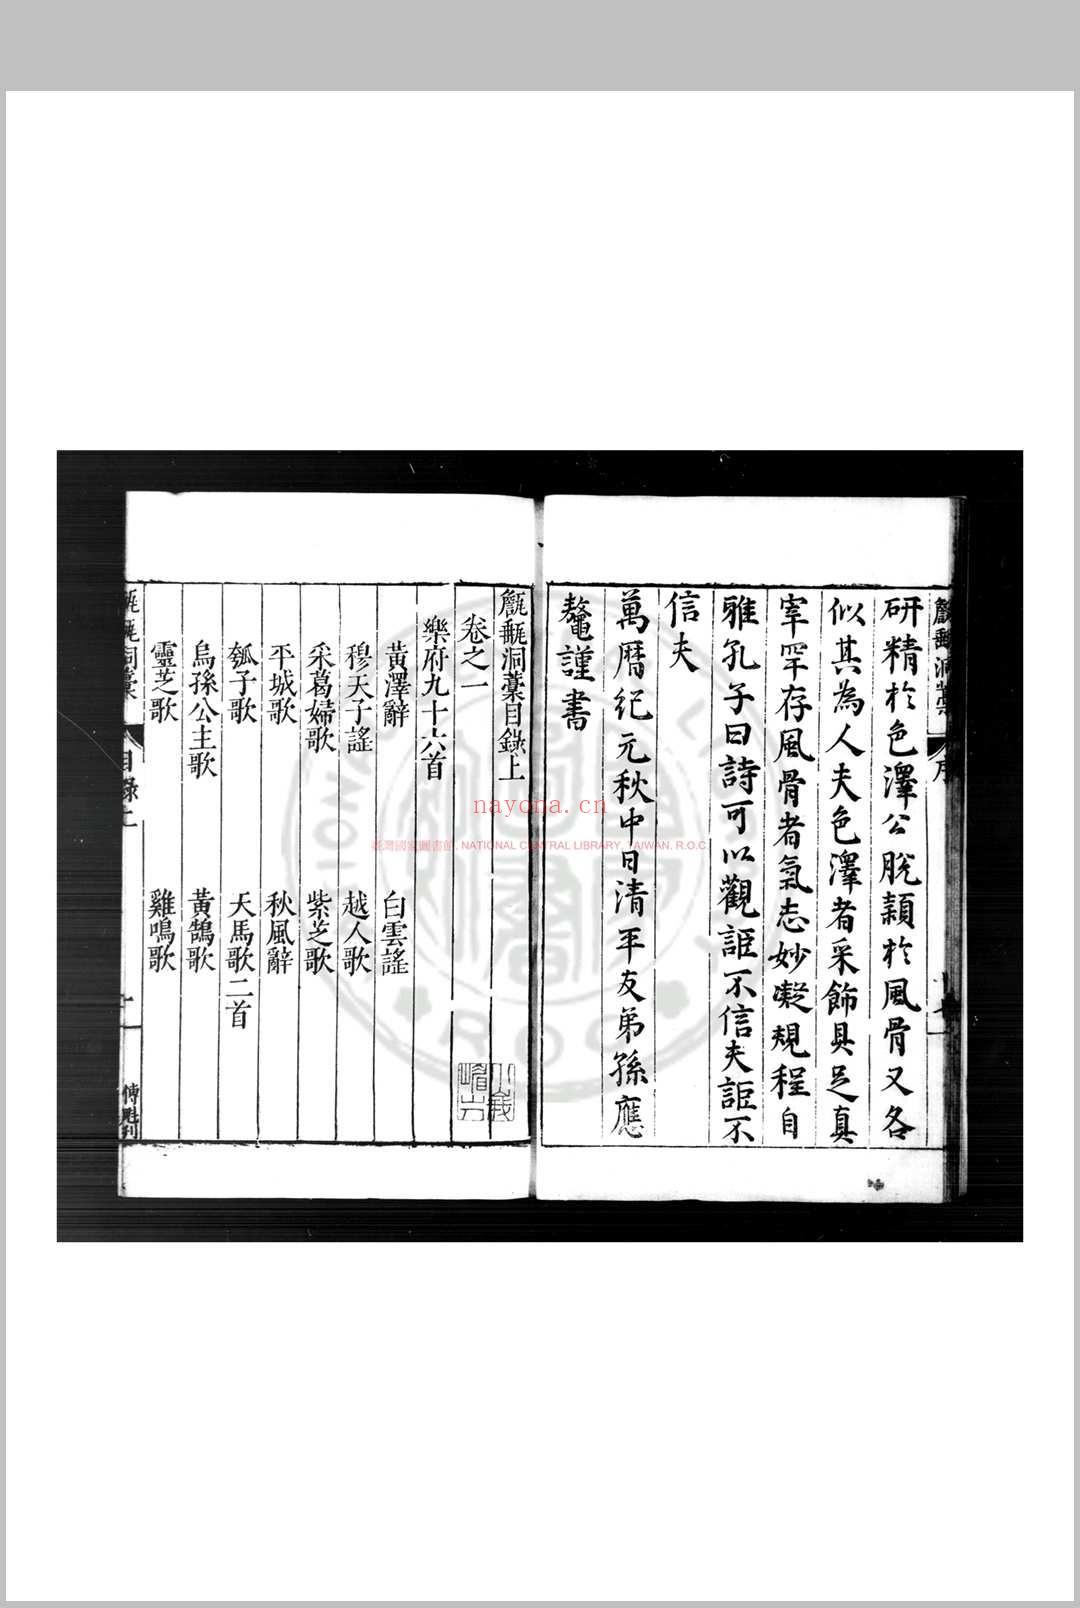 研精於色澤公脫穎於風骨又各
似其為人夫色澤者采飾具足真
宰罕存風骨者氣志妙凝規程自
雅孔子曰詩可以觀詎不信夫詎不
信夫
萬曆紀元秋中日清平友弟孫應
鼇謹書
序
甔甀洞藁目錄上
卷之一
樂府九十六首
黃澤辭
白雲謠
穆天子謠
越人歌
采葛婦歌
紫芝歌
平城歌
秋風辭
瓠子歌
天馬歌二首
烏孫公主歌
黃鵠歌
靈芝歌
雞鳴歌
甔甀洞藁
目錄上
傅魁刊
nayona.cn
臺灣國家圖書館, NATIONAL CENTRAL LIBRARY, TAIWAN, R.O.C